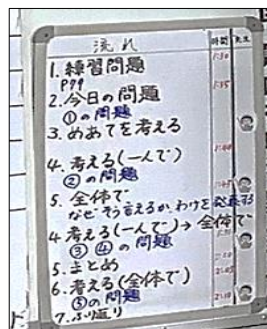 流れ 時間 先生
1. 練習問題 1:30
P99
2. 今日の問題 1:35
①の問題
3. めあてを考える
4. 考える(一人で) 1:40
②の問題
5. 全体で 1:45
なぜそう言えるか、わけを発表する
4 考える(一人で)→全体で
③④の問題
5. まとめ
6. 考える(全体で)
⑤の問題
7. ふり返り